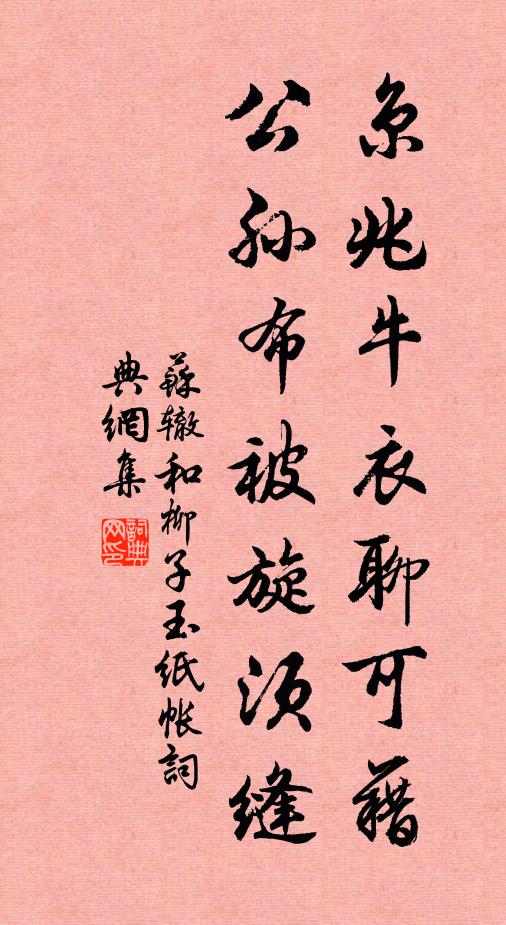 京兆牛衣聊可藉
公孙布被旋须缝
蘇辙和柳子玉紙帐詞
典網集
詞典网印